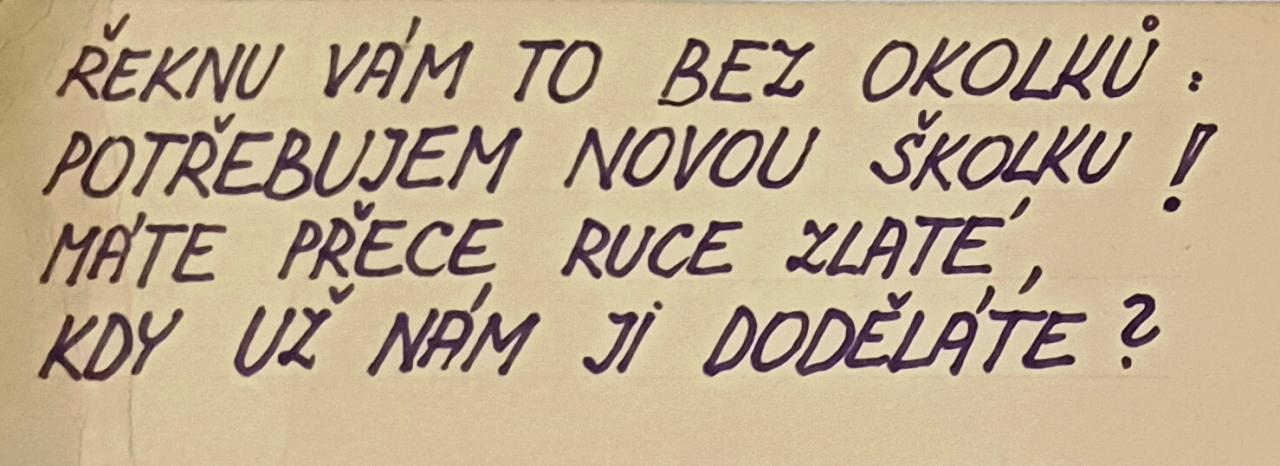 ŘEKNU VÁM TO BEZ OKOLKŮ:
POTŘEBUJEM NOVOU ŠKOLKU!
MÁTE PŘECE RUCE ZLATÉ,
KDY UŽ NÁM JÍ DODĚLÁTÉ?